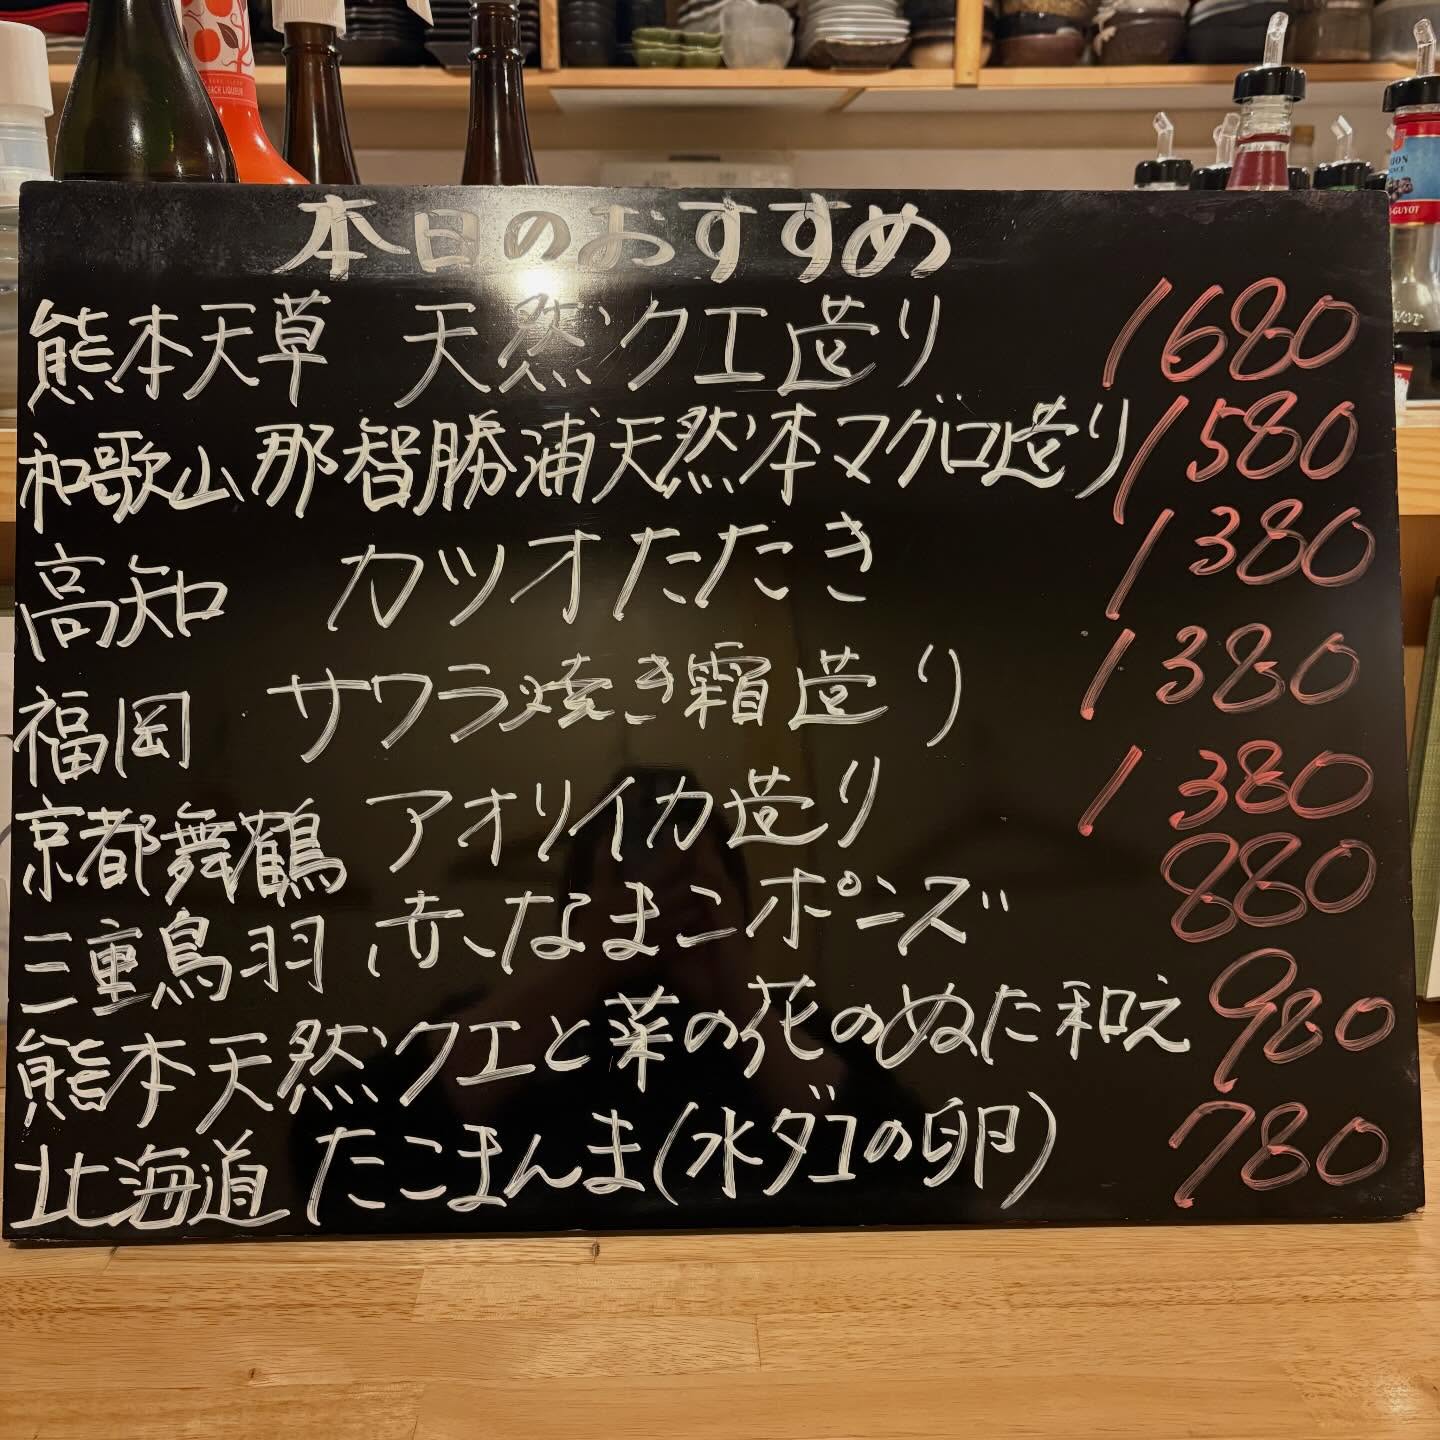 本日のおすすめ
熊本天草 天然クエ造り 1680
和歌山那智勝浦天然本マグロ造り 1580
高知 カツオたたき 1380
福岡 サワラ焼き霜造り 1380
京都舞鶴 アオリイカ造り 1380
三重鳥羽 赤なまこポンズ 880
熊本天然クエと菜の花のぬた和え 980
北海道 たこまんま(水ダコの卵) 780
PEACH LIQUEUR
GUYOT